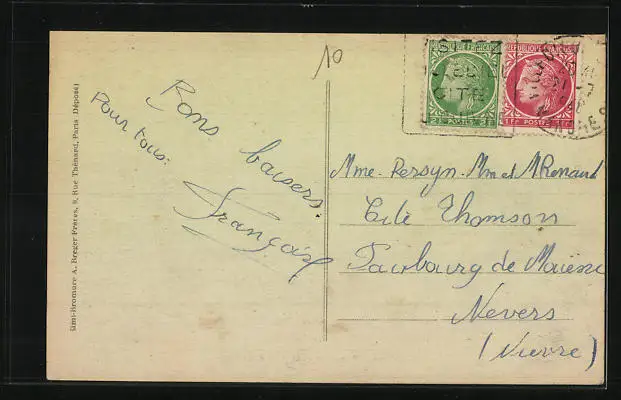 10
Pour tous:
Bons baisers
Françoise
Simi-Bromure A. Breger Frères, 9, Rue Thénard, Paris (Déposé)
REPUBLIQUE FRANÇAISE
POSTES 1F
Mme Persyn. Mm et M Renaud
Cité Thomson
Faubourg de Mouësse
Nevers
(Nièvre)